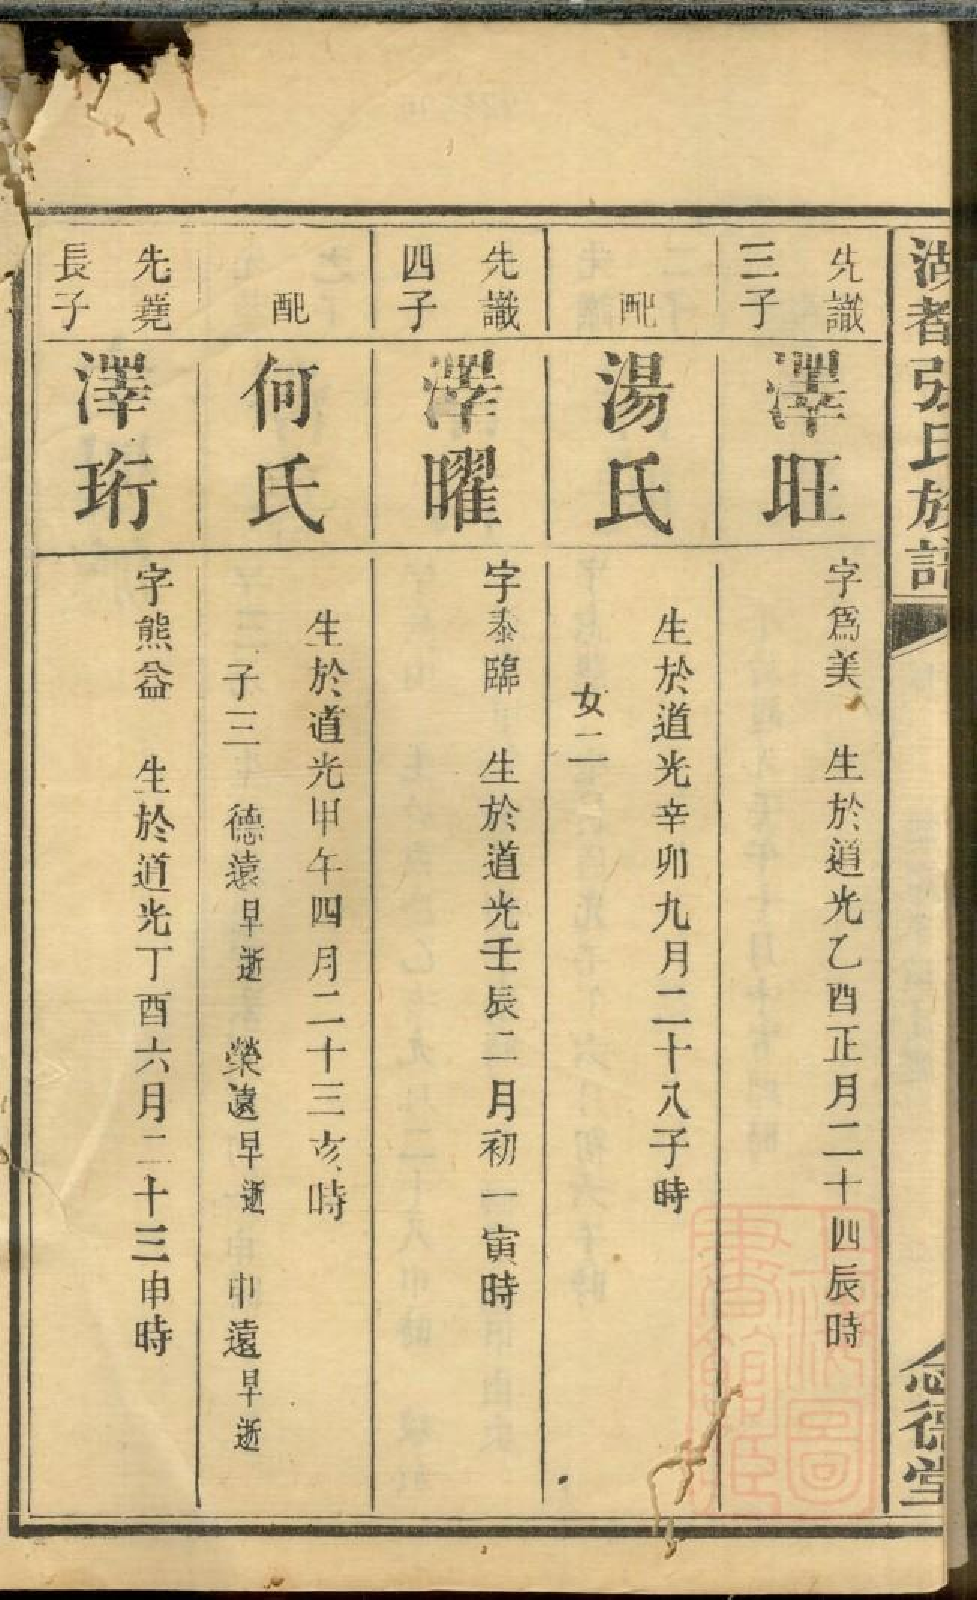 湖都張氏族譜
念德堂
先識
三子
澤旺
字為美　生於道光乙酉正月二十四辰時
配
湯氏
生於道光辛卯九月二十八子時
女二
先識
四子
澤曜
字泰臨　生於道光壬辰二月初一寅時
配
何氏
生於道光甲午四月二十三亥時
子三　德遠早逝　榮遠早逝　申遠早逝
先蕘
長子
澤珩
字熊益　生於道光丁酉六月二十三申時
上海圖書館藏